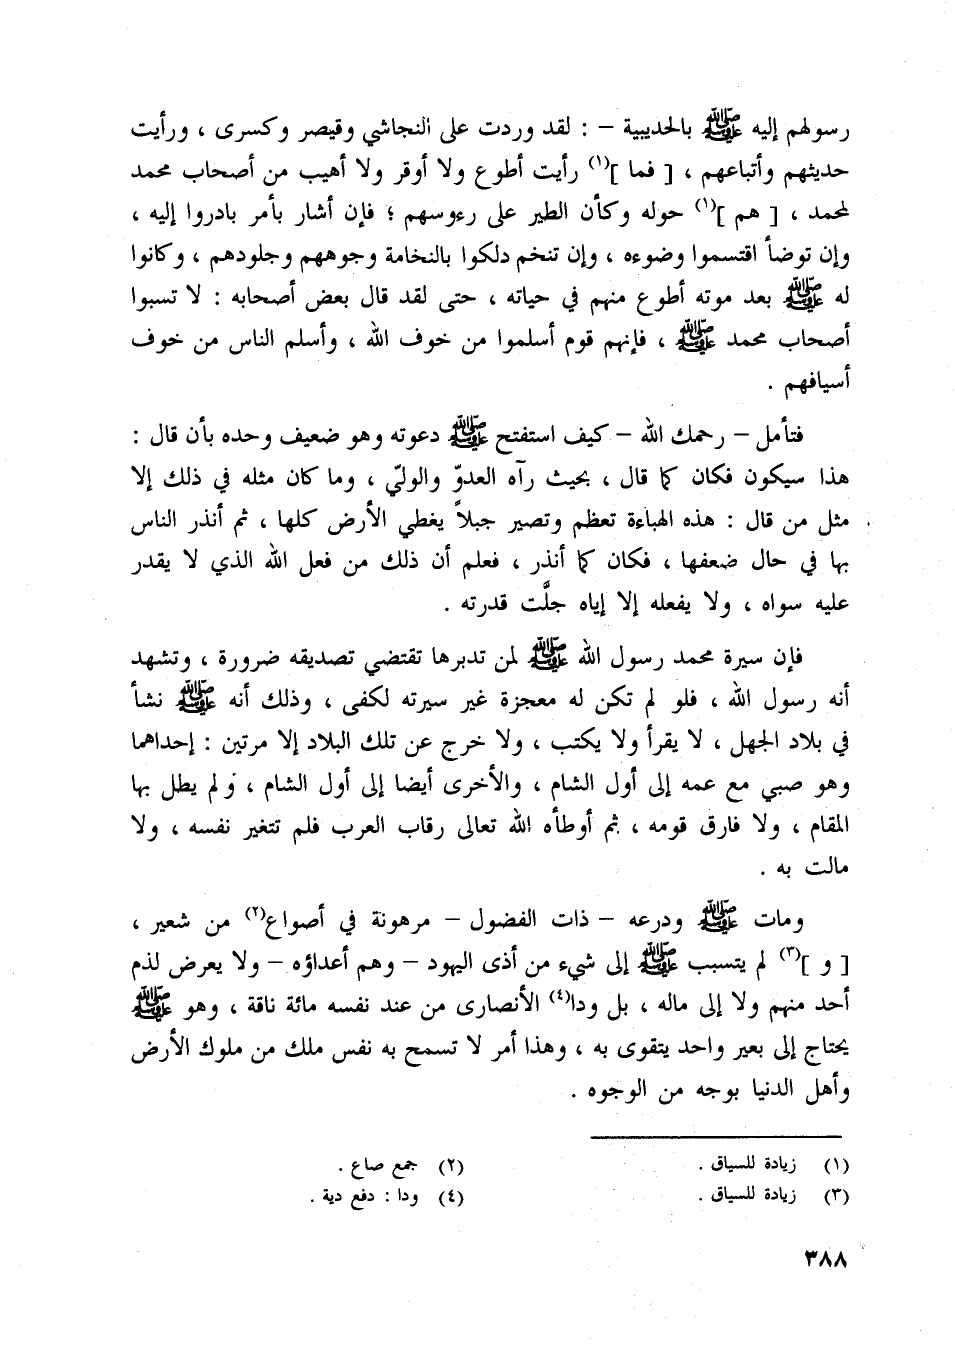 رسولهم إليه ﷺ بالحديبية – : لقد وردت على النجاشي وقيصر وكسرى ، ورأيت
حديثهم وأتباعهم ، [ فما ](١) رأيت أطوع ولا أوقر ولا أهيب من أصحاب محمد
لمحمد ، [ هم ](١) حوله وكأن الطير على رءوسهم ؛ فإن أشار بأمر بادروا إليه ،
وإن توضأ اقتسموا وضوءه ، وإن تنخم دلكوا بالنخامة وجوههم وجلودهم ، وكانوا
له ﷺ بعد موته أطوع منهم في حياته ، حتى لقد قال بعض أصحابه : لا تسبوا
أصحاب محمد ﷺ ، فإنهم قوم أسلموا من خوف الله ، وأسلم الناس من خوف
أسيافهم .
فتأمل – رحمك الله – كيف استفتح ﷺ دعوته وهو ضعيف وحده بأن قال :
هذا سيكون فكان كما قال ، بحيث رآه العدوّ والوليّ ، وما كان مثله في ذلك إلا
مثل من قال : هذه الهباءة تعظم وتصير جبلاً يغطي الأرض كلها ، ثم أنذر الناس
بها في حال ضعفها ، فكان كما أنذر ، فعلم أن ذلك من فعل الله الذي لا يقدر
عليه سواه ، ولا يفعله إلا إياه جلَّت قدرته .
فإن سيرة محمد رسول الله ﷺ لمن تدبرها تقتضي تصديقه ضرورة ، وتشهد
أنه رسول الله ، فلو لم تكن له معجزة غير سيرته لكفى ، وذلك أنه ﷺ نشأ
في بلاد الجهل ، لا يقرأ ولا يكتب ، ولا خرج عن تلك البلاد إلا مرتين : إحداهما
وهو صبي مع عمه إلى أول الشام ، والأخرى أيضا إلى أول الشام ، ولم يطل بها
المقام ، ولا فارق قومه ، ثم أوطأه الله تعالى رقاب العرب فلم تتغير نفسه ، ولا
مالت به .
ومات ﷺ ودرعه – ذات الفضول – مرهونة في أصواع(٢) من شعير ،
[ و ](٣) لم يتسبب ﷺ إلى شيء من أذى اليهود – وهم أعداؤه – ولا يعرض لذم
أحد منهم ولا إلى ماله ، بل ودا(٤) الأنصارى من عند نفسه مائة ناقة ، وهو ﷺ
يحتاج إلى بعير واحد يتقوى به ، وهذا أمر لا تسمح به نفس ملك من ملوك الأرض
وأهل الدنيا بوجه من الوجوه .
(١) زيادة للسياق . (٢) جمع صاع .
(٣) زيادة للسياق . (٤) ودا : دفع دية .
٣٨٨